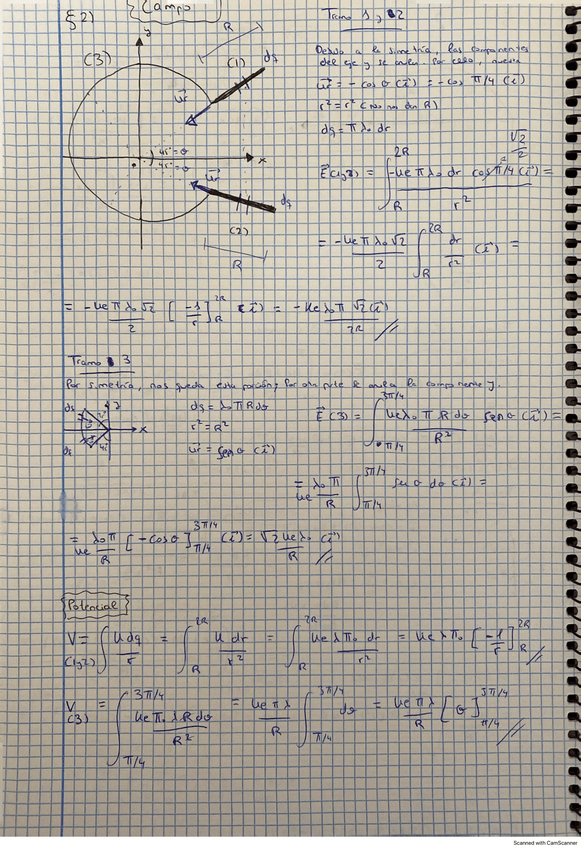 §2)
Campo
Tramo 1 y 2
y
R
(3)
(1)
dq
ur
Debido a la simetría, las componentes
del eje y se anulan. Por ello, nuestra
ur = - cos θ (i) = - cos π/4 (i)
r² = r² (no nos dan R)
dq = π λ₀ dr
45° = θ
45° = θ
x
ur
dq
(2)
R
√2/2
E(1,2) = ∫_R^{2R} -ke π λ₀ dr cos π/4 (i) / r² =
= -ke π λ₀ √2 / 2 ∫_R^{2R} dr / r² (i) =
= -ke π λ₀ √2 / 2 [-1/r]_R^{2R} (i) = -ke λ₀ π √2 (i) / 2R
Tramo 3
Por simetría, nos queda esta porción, por otra parte se anula la componente y.
dq
y
x
45°
dq
dq = λ₀ π R dθ
r² = R²
ur = sen θ (i)
E(3) = ∫_{π/4}^{3π/4} ke λ₀ π R dθ / R² sen θ (i) =
= ke λ₀ π / R ∫_{π/4}^{3π/4} sen θ dθ (i) =
= ke λ₀ π / R [-cos θ]_{π/4}^{3π/4} (i) = √2 ke λ₀ / R (i)
Potencial
V(1,2) = ∫ k dq / r = ∫_R^{2R} k dr / r² = ∫_R^{2R} ke λ π₀ dr / r² = ke λ π₀ [-1/r]_R^{2R}
V(3) = ∫_{π/4}^{3π/4} ke π₀ λ R dθ / R² = ke π λ / R ∫_{π/4}^{3π/4} dθ = ke π λ / R [θ]_{π/4}^{3π/4}
Scanned with CamScanner